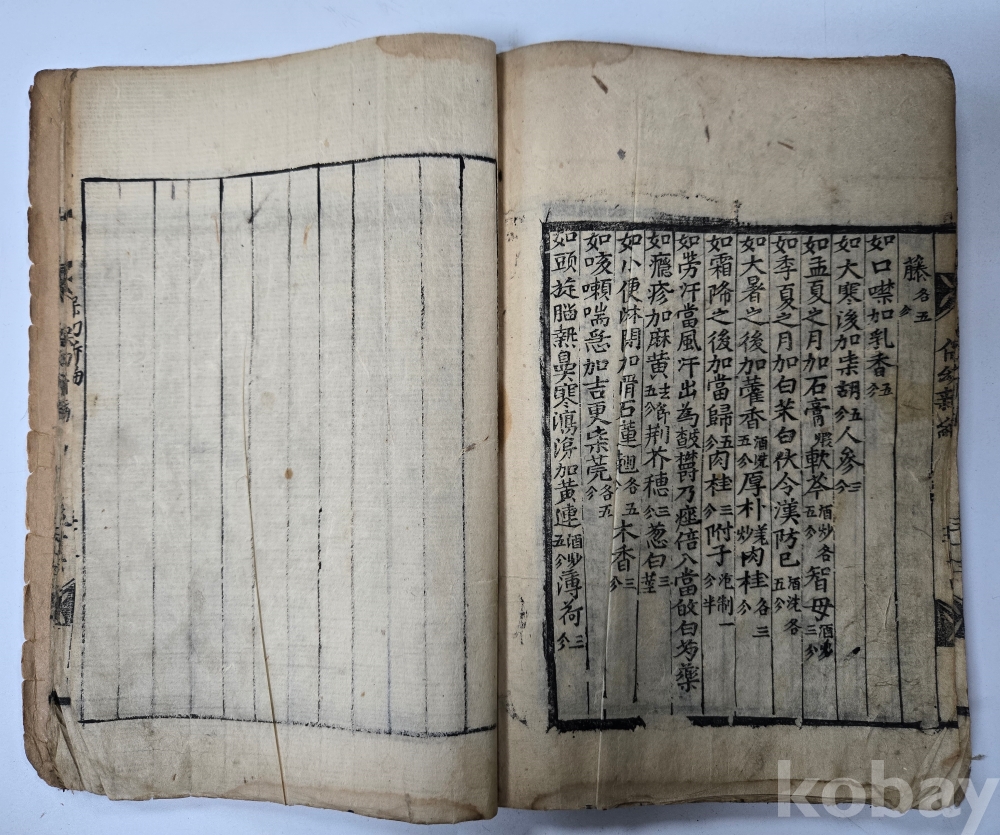 藤 各五分
如口噤加乳香五分
如大寒後加柴胡五分人參三分
如孟夏之月加石膏煆軟芩酒炒各五分智母酒炒三分
如季夏之月加白茱白伏令漢防已酒洗各五分
如大暑之後加藿香酒洗五分厚朴羌炒肉桂各三分
如霜降之後加當歸五分肉桂三分附子炮制一分半
如勞汗當風汗出為皶欝乃痤倍入當故白芍藥
如癮疹加麻黃去節五分荆芥穗三分葱白三莖
如小便淋閉加滑石蓮翹各五分木香三分
如咳嗽喘急加吉更柴莞各五分
如頭旋腦熱鼻寒瀉淚加黃連酒炒五分薄荷三分
kobay